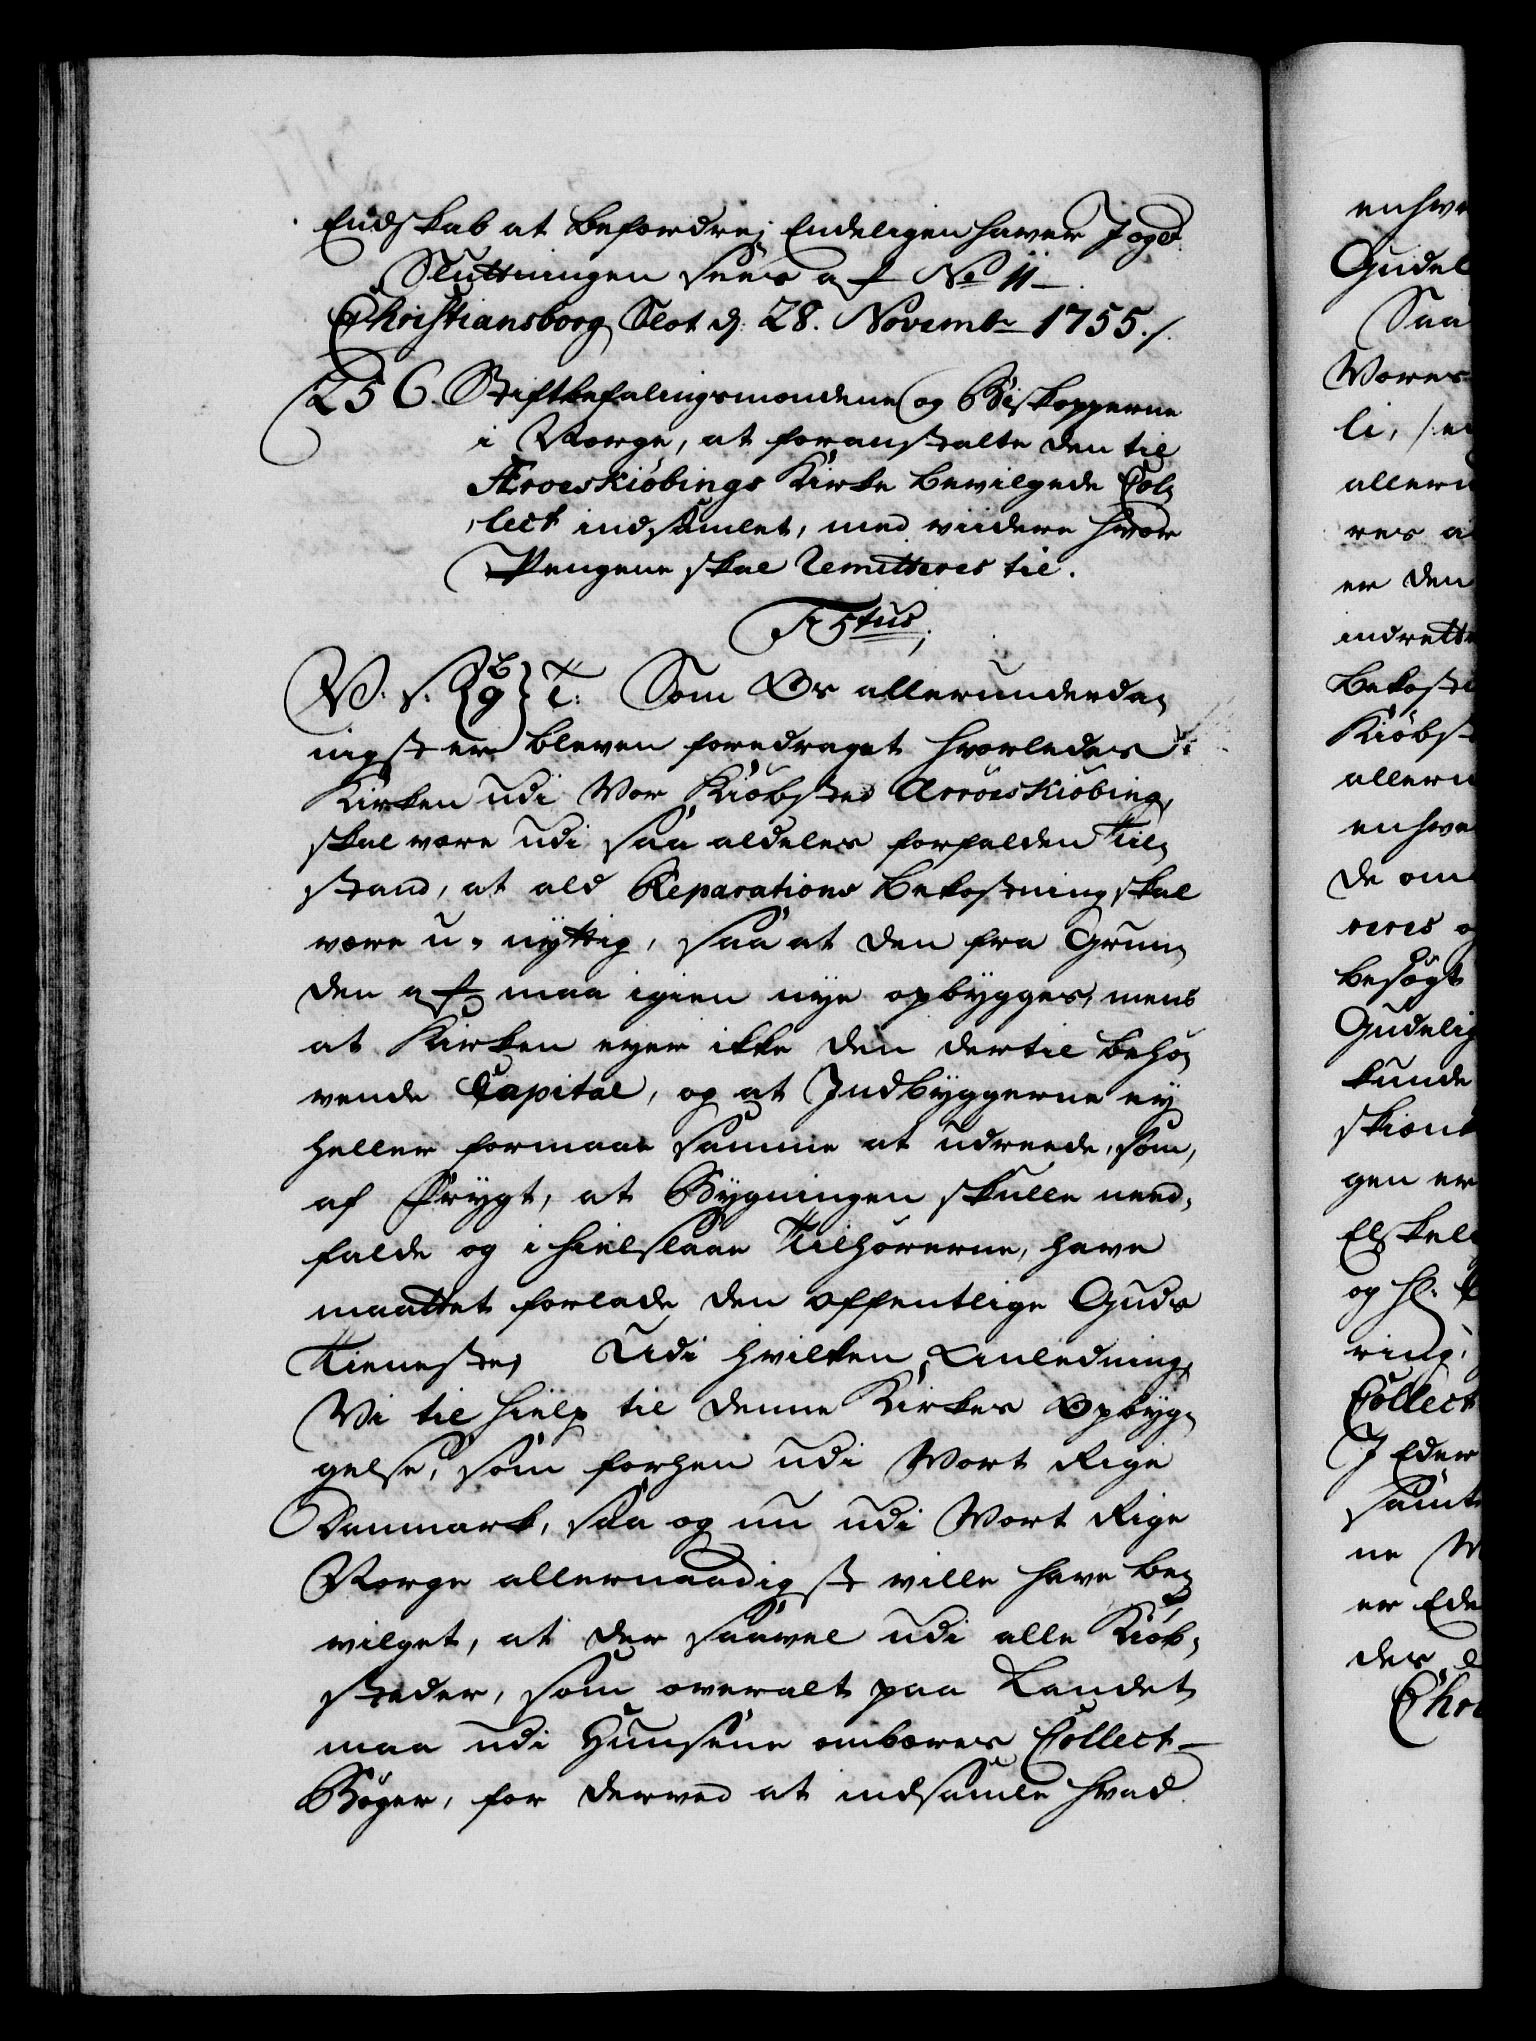 Endskab at befordre; Endeligen haver I ogs.
Sluttningen sees af No 11 –
Christiansborg Slot d: 28. Novembr 1755./.
256. Stiftbefalingsmændene og Biskopperne
i Norge, at foranstalte den til
Æroeskiøbings Kirke bevilgede Col-
lect indsamlet, med viidere hvor
Pengene skal remitteres til.
F5tus,
V. S. {b g} T: Som Os allerunderda-
nigst er bleven foredraget hvorledes
Kirken udi Vor Kiøbsted Arröeskiöbing,
skal være udi saa aldeles forfalden Til-
stand, at ald Reparations Bekostning skal
være u-nyttig, saa at den fra Grun-
den af maa igien nye opbygges, mens
at Kirken eyer ikke den dertil behø-
vende Capital, og at Indbyggerne ey
heller formaae samme at udreede, som,
af Frygt, at Bygningen skulle need-
falde og ihielslaae Tilhørerne, have
maattet forlade den offentlige Guds
Tieneste; Udi hvilken Anledning,
Vi til Hielp til denne Kirkes Opbyg-
gelse, som forhen udi Vort Rige
Danmark, saa og nu udi Vort Rige
Norge allernaadigst ville have be-
vilget, at der saavel udi alle Kiøb-
stæder, som overalt paa Landet
maa udi Huusene ombæres Collect-
Bøger, for derved at indsamle hvad
enhve
Gudel
Saa
Vores
li, /:e
allern
res a
er den
indrette
bekoste
Kiöbst
allern
enhve
de om
reres o
besøgt
Gudelig
kunde
skiønt
gen er
Elskel
og H.
ring,
Collect
I Eder
samt
ne
er Ede
des
Chri